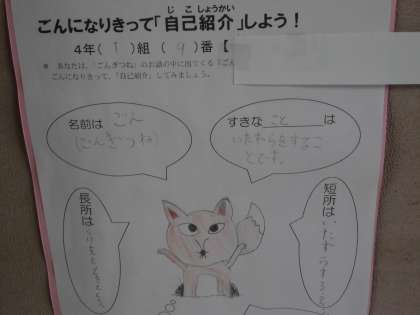 じこしょうかい
ごんになりきって「自己紹介」しよう！
4年( 1 )組 ( 9 )番【
* あなたは、「ごんぎつね」のお話の中に出てくる「ご
ごんになりきって、「自己紹介」してみましょう。
名前は ごん
(ごんぎつね)
すきな こと は
いたずらをするこ
とです。
長所は
短所はいたずらすること